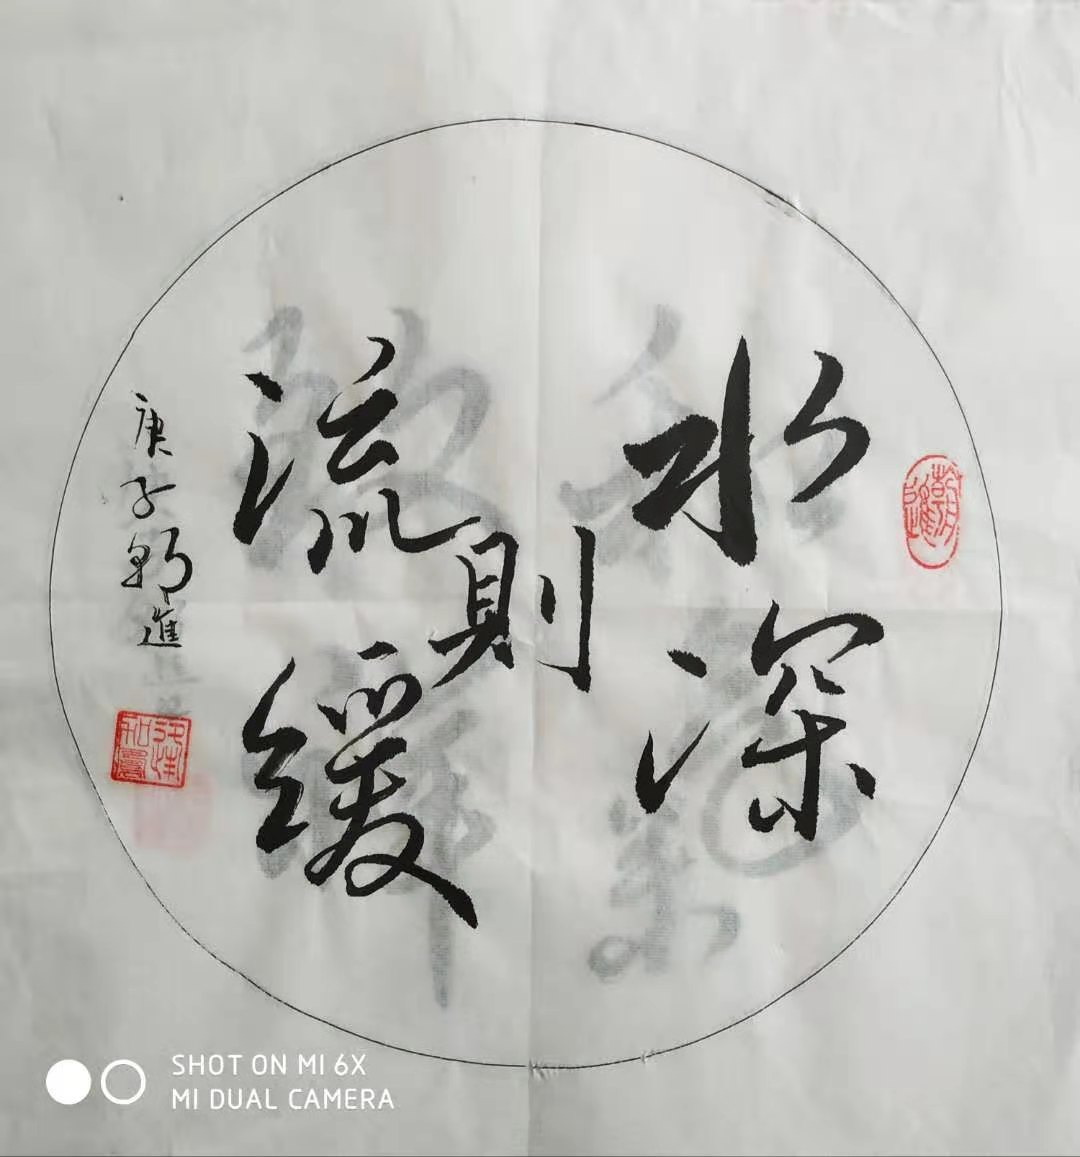 水深
則
流緩
庚子朝進
SHOT ON MI 6X
MI DUAL CAMERA